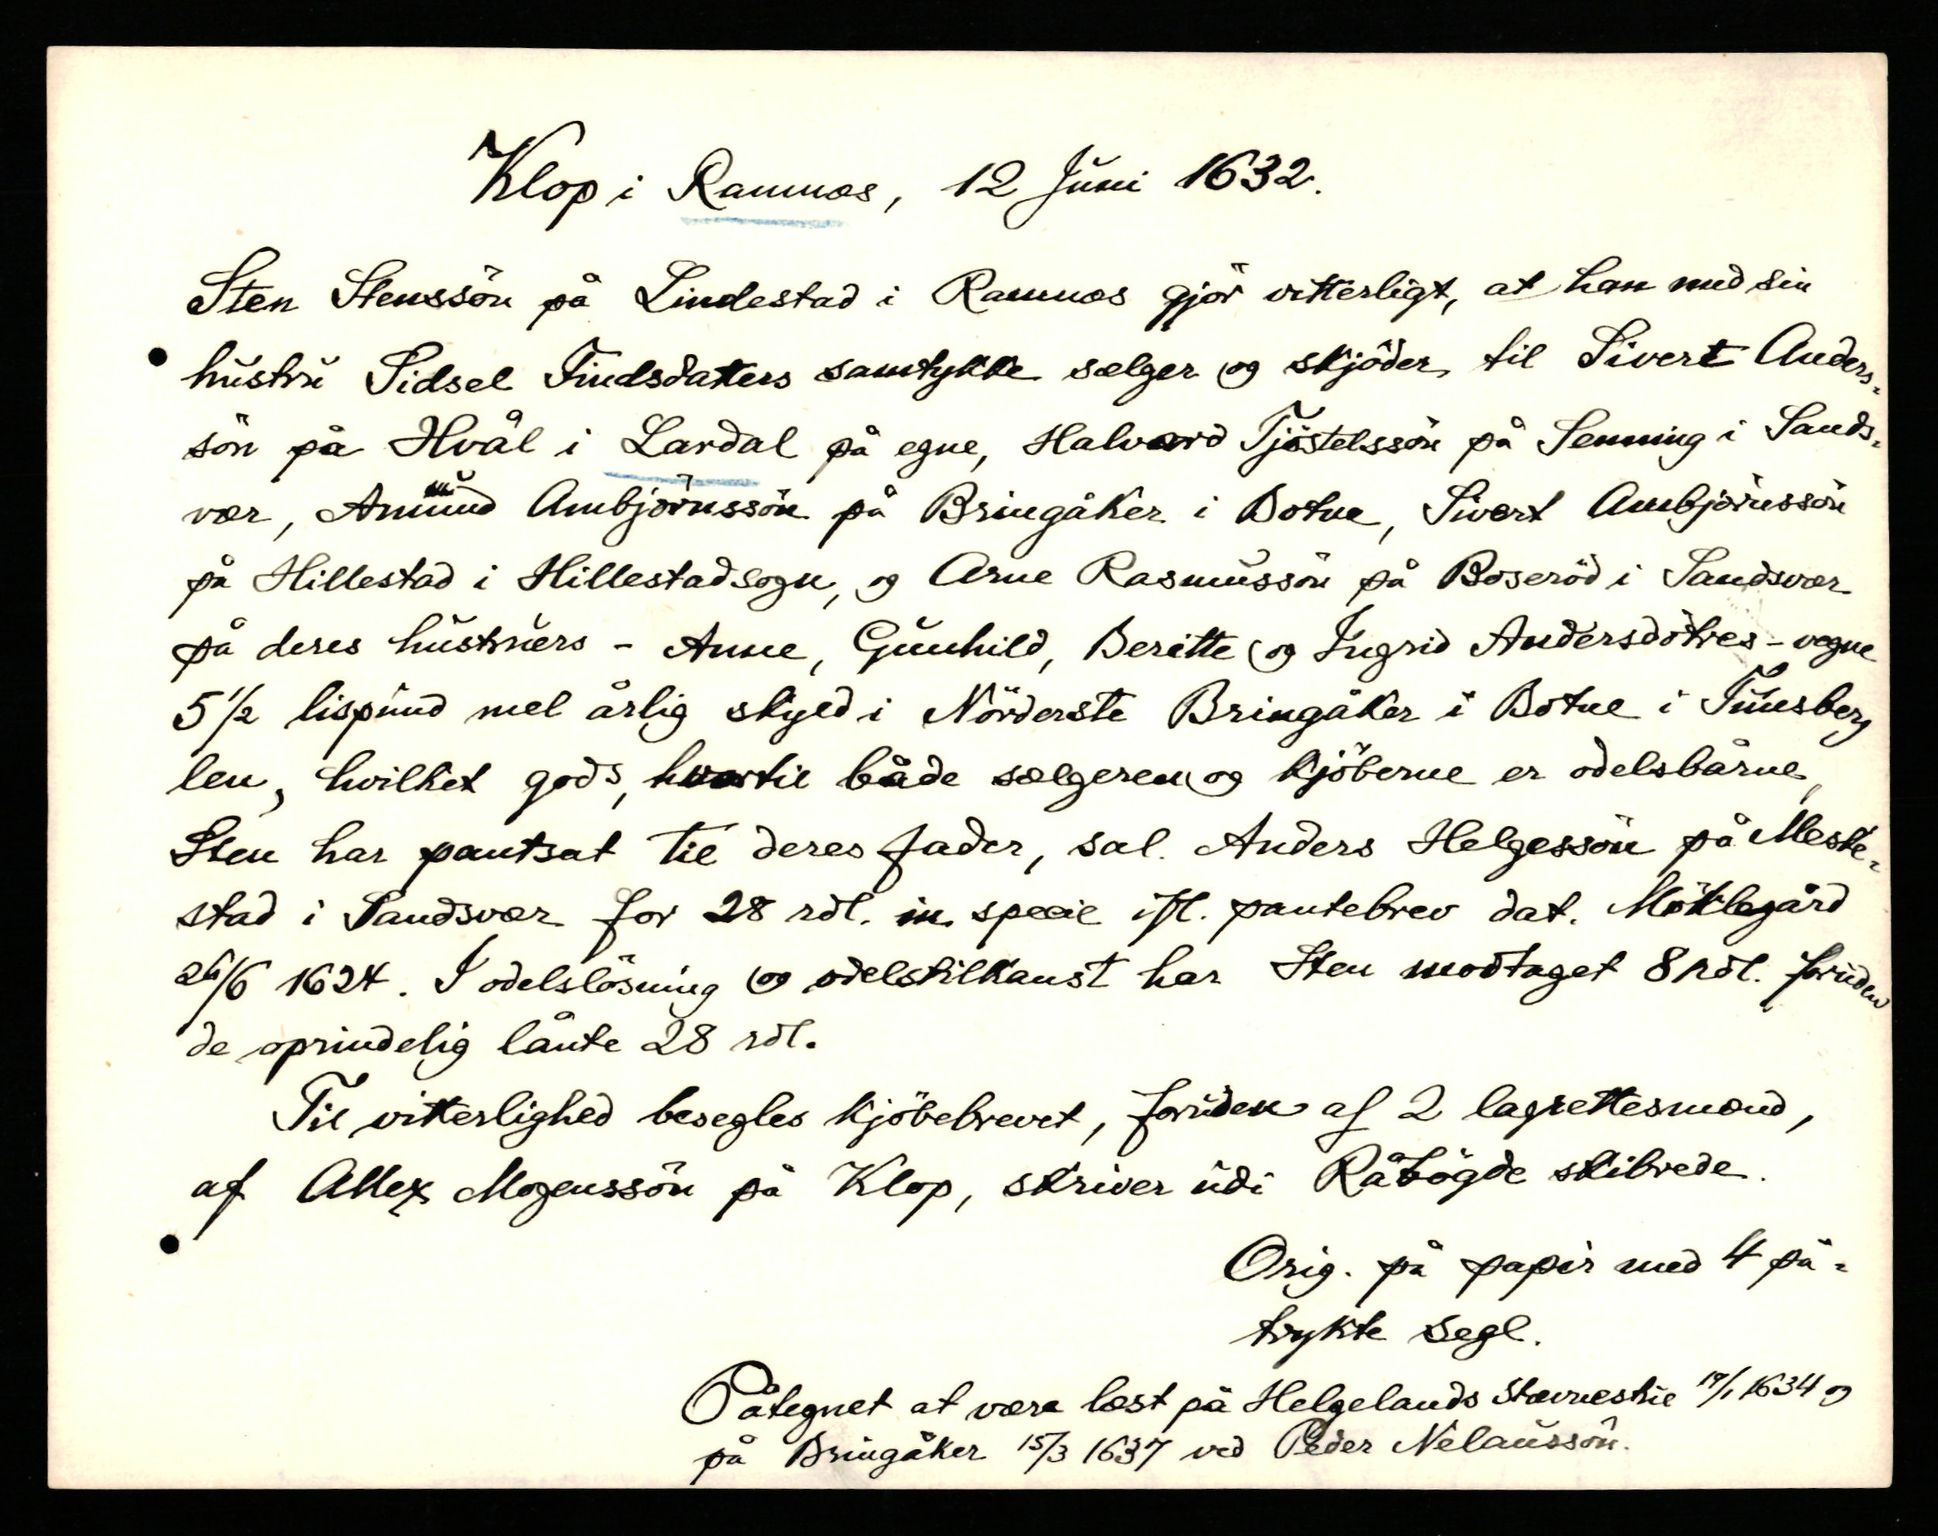 Klop i Ramnæs, 12 Juni 1632.
Sten Stenssön på Lindestad i Ramnæs gjör vitterligt, at han med sin
hustru Sidsel Findsdatters samtykke sælger og skjöder til Sivert Anders-
sön på Hvål i Lardal på egne, Halvard Tjöstelssön på Semming i Sands-
vær, Amund Ambjörnssön på Bringåker i Botne, Sivert Ambjörnssön
på Hillestad i Hillestad sogn, og Arne Rasmussön på Boseröd i Sandsvær
på deres hustruers - Anne, Gunhild, Beritte og Ingrid Andersdötres - vegne
5 1/2 lispund mel årlig skyld i Nörderste Bringåker i Botne i Tunsberg
len, hvilket gods, hvortil både sælgeren og kjöberne er odelsbårne,
Sten har pantsat til deres fader, sal. Anders Helgessön på Meste-
stad i Sandsvær for 28 rdl. in specie ifl. pantebrev dat. Möklegård
26/6 1624. I odelslösning og odelstilkaust har Sten modtaget 8 rdl. foruden
de oprindelig lånte 28 rdl.
Til vitterlighed besegles kjöbebrevet, foruden af 2 lagrettesmænd,
af Allex Mogenssön på Klop, skriver udi Råbögde skibrede.
Orig. på papir med 4 på-
trykte segl.
Påtegnet at være læst på Helgelands Stævnestue 17/1 1634 og
på Bringåker 15/3 1637 ved Peder Nelaussön.